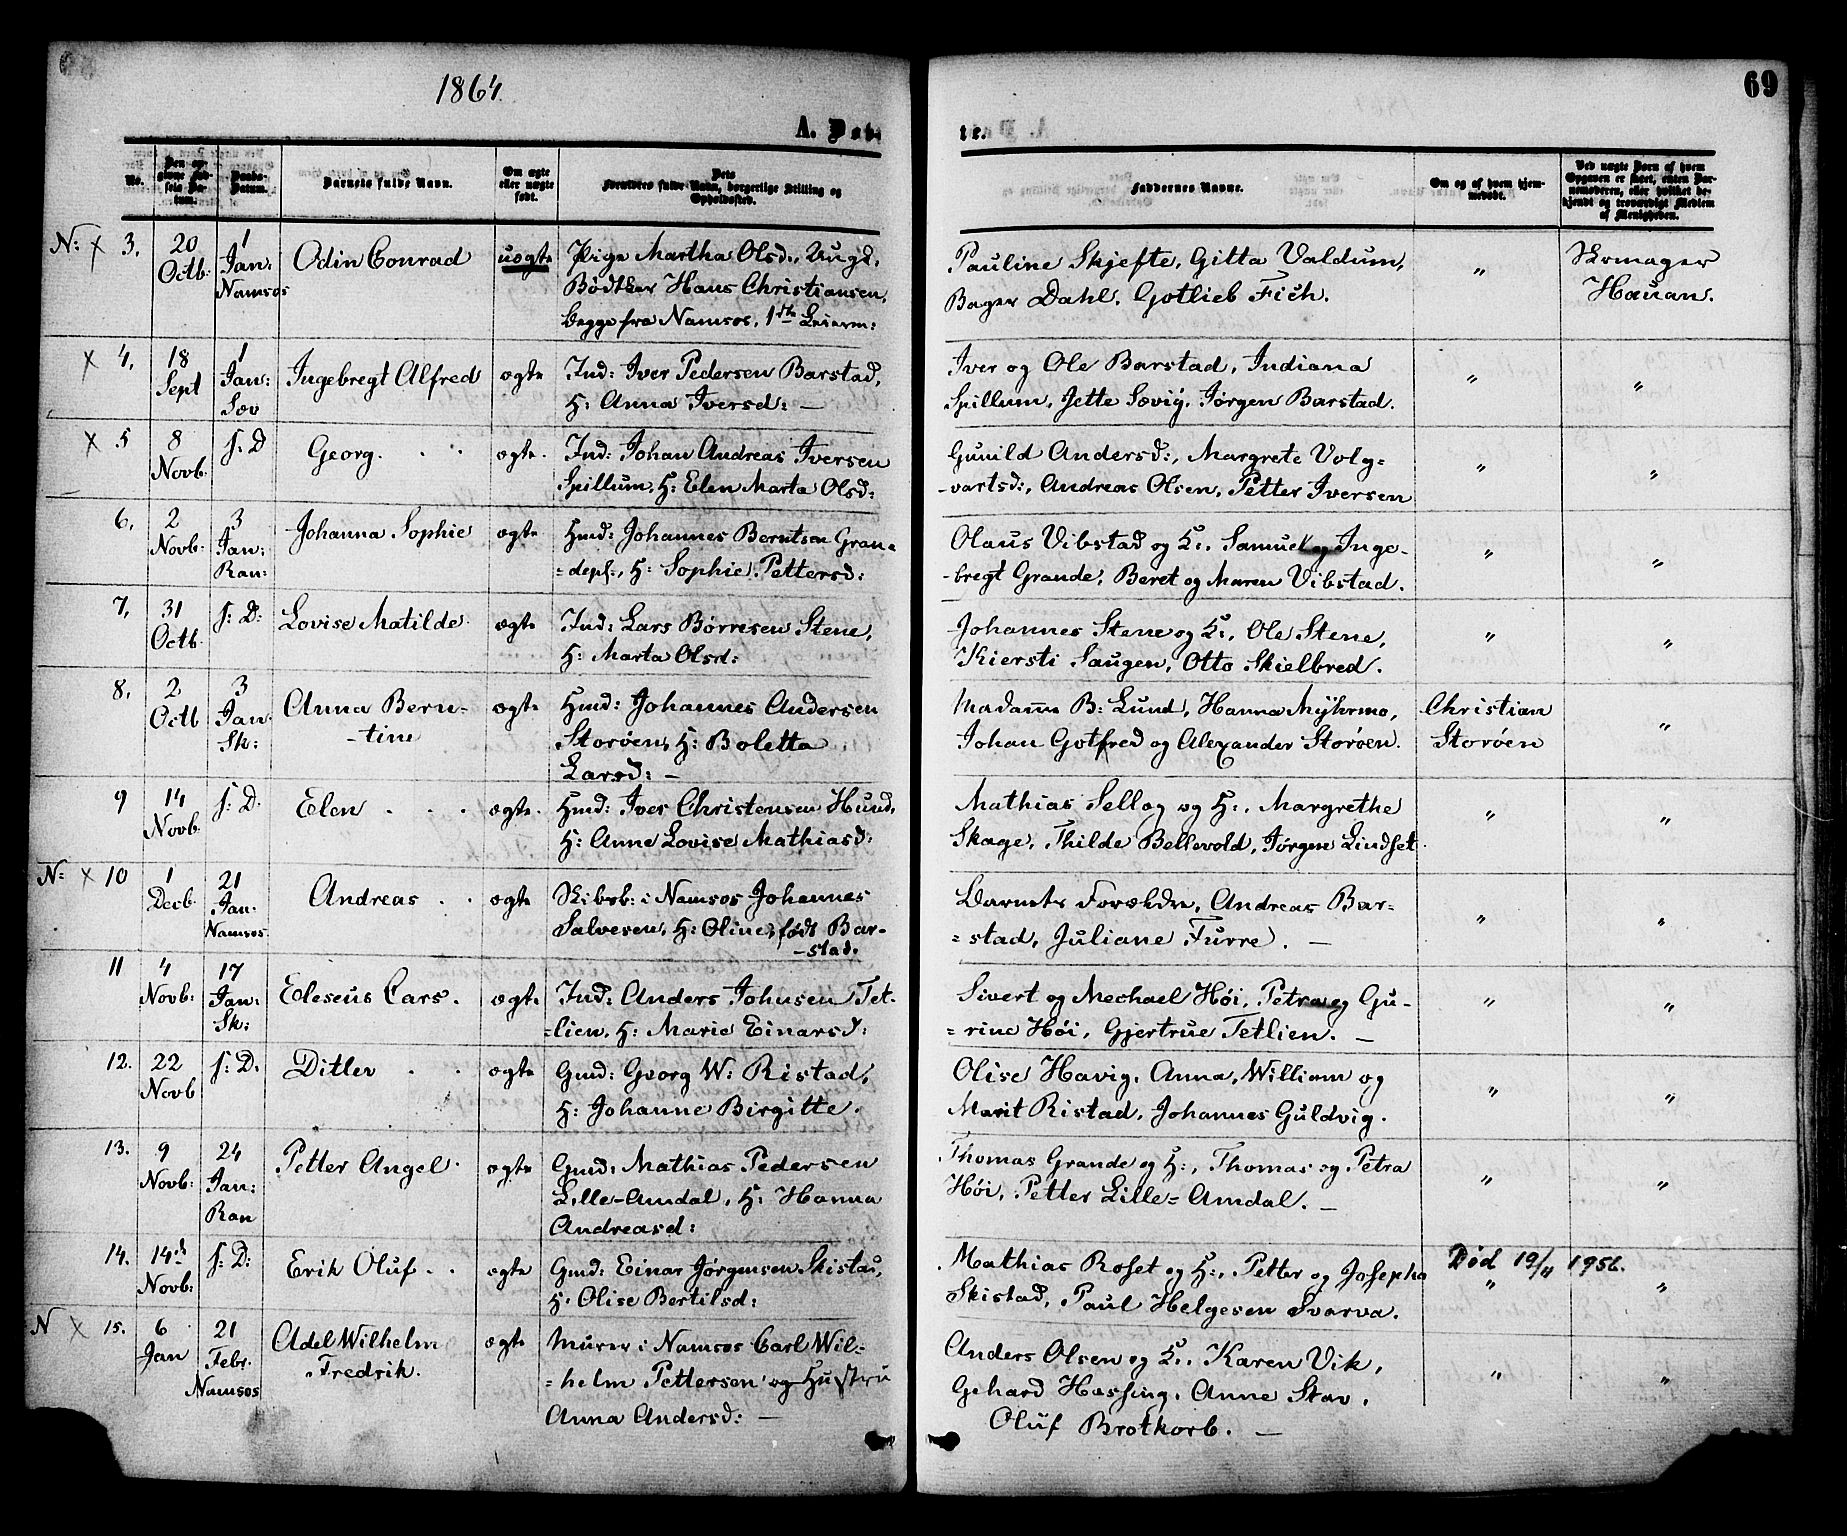 1864.
69
A. Døbte.
No.
Den opgivne Fødsels Datum.
Daabs-Datum.
Barnets fulde Navn.
Om ægte eller uægte født.
Dets Forældres fulde Navn, borgerlige Stilling og Opholdssted.
Faddernes Navne.
Om og af hvem hjemmedøbt.
Ved uægte Børn af hvem Opgaven er skeet, enten Barnemoderen, eller hvilket bekjendt og troværdigt Medlem af Menigheden.
N: x 3. 20 Octb. 1 Jan: Namsos Odin Conrad uægte Pige Martha Olsd., Ungk.
Bødtker Hans Christiansen,
begge fra Namsos, 1ste Leierm:
Pauline Skjefte, Gitta Valdum,
Bager Dahl, Gotlieb Fich.
"
Skomager
Hauan.
x 4. 18 Sept 1 Jan: Sæv Ingebregt Alfred ægte Ind: Iver Pedersen Barstad,
H: Anna Iversd: —
Iver og Ole Barstad, Indiana
Spillum, Jette Sævig, Jørgen Barstad.
" "
x 5 8 Novb. s: D Georg. ægte. Ind: Johan Andreas Iversen
Spillum, H: Elen Marta Olsd:
Gunild Andersd:, Margrete Volq-
-vartsd:, Andreas Olsen, Petter Iversen
" "
6. 2 Novb. 3 Jan: Ran: Johanna Sophie ægte Hmd: Johannes Berntsen Gran-
=depl., H: Sophie Pettersd:
Olaus Vibstad og H:, Samuel og Inge-
-bregt Grande, Beret og Maren Vibstad.
" "
7. 31 Octb. s: D: Lovise Matilde ægte Ind: Lars Børresen Stene,
H: Marta Olsd:
Johannes Stene og H:, Ole Stene,
Kiersti Saugen, Otto Skielbred.
" "
8. 2 Octb 3 Jan. Sk: Anna Bern-
-tine ægte Hmd: Johannes Andersen
Storøen, H: Boletta
Larsd: —
Madame B: Lund, Hanna Myhrmo,
Johan Gotfred og Alexander Storøen.
Christian
Storøen
"
9 14 Novb. s: D. Elen ægte. Hmd: Iver Christensen Hund,
H: Anne Lovise Mathiasd:
Mathias Selløg og H:, Margrethe
Skage, Thilde Bellevold, Jørgen Lindset.
" "
N: x 10 1 Decb. 21 Jan. Namsos. Andreas ægte Skibsb: i Namsos Johannes
Salvesen, H: Oline, født Bar-
-stad.
Barnets Forældre, Andreas Bar-
=stad, Juliane Furre. —
" "
11 4 Novb: 17 Jan: Sk: Eleseus Cars. ægte Ind: Anders Johnsen Tet-
=lien, H: Marie Einarsd:
Sivert og Mechael Høi, Petra og Gu-
=rine Høi, Gjertrue Tetlien. —
" "
12. 22 Novb s: D. Ditlev ægte Gmd: Georg W: Ristad,
H: Johanne Birgitte.
Olise Havig, Anna, William og
Marit Ristad, Johannes Guldvig.
" "
13. 9 Novb: 24 Jan: Ran Petter Angel. ægte Gmd: Mathias Pedersen
Lille-Amdal, H: Hanna
Andreasd:
Thomas Grande og H:, Thomas og Petra
Høi, Petter Lille=Amdal. —
" "
14. 14de Novb: s: D: Erik Oluf ægte Gmd: Einar Jørgensen Skistad,
H: Olise Bertilsd:
Mathias Roset og H:, Petter og Josepha
Skistad, Paul Helgesen Svarva.
Død 19/11 1956.
" "
N x 15. 6 Jan 21 Febr. Namsos Adel Wilhelm
Fredrik. ægte Murer i Namsos Carl Wil-
=helm Pettersen og Hustru
Anna Andersd: —
Anders Olsen og H:, Karen Vik,
Gehard Hassing, Anne Stav,
Oluf Brotkorb. —
" "